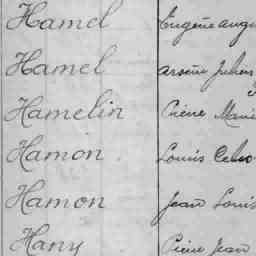 Hamel Eugène augu
Hamel arsène Julien
Hamelin Pierre Marie
Hamon Louis
Hamon Jean Louis
Hany Pierre Jean